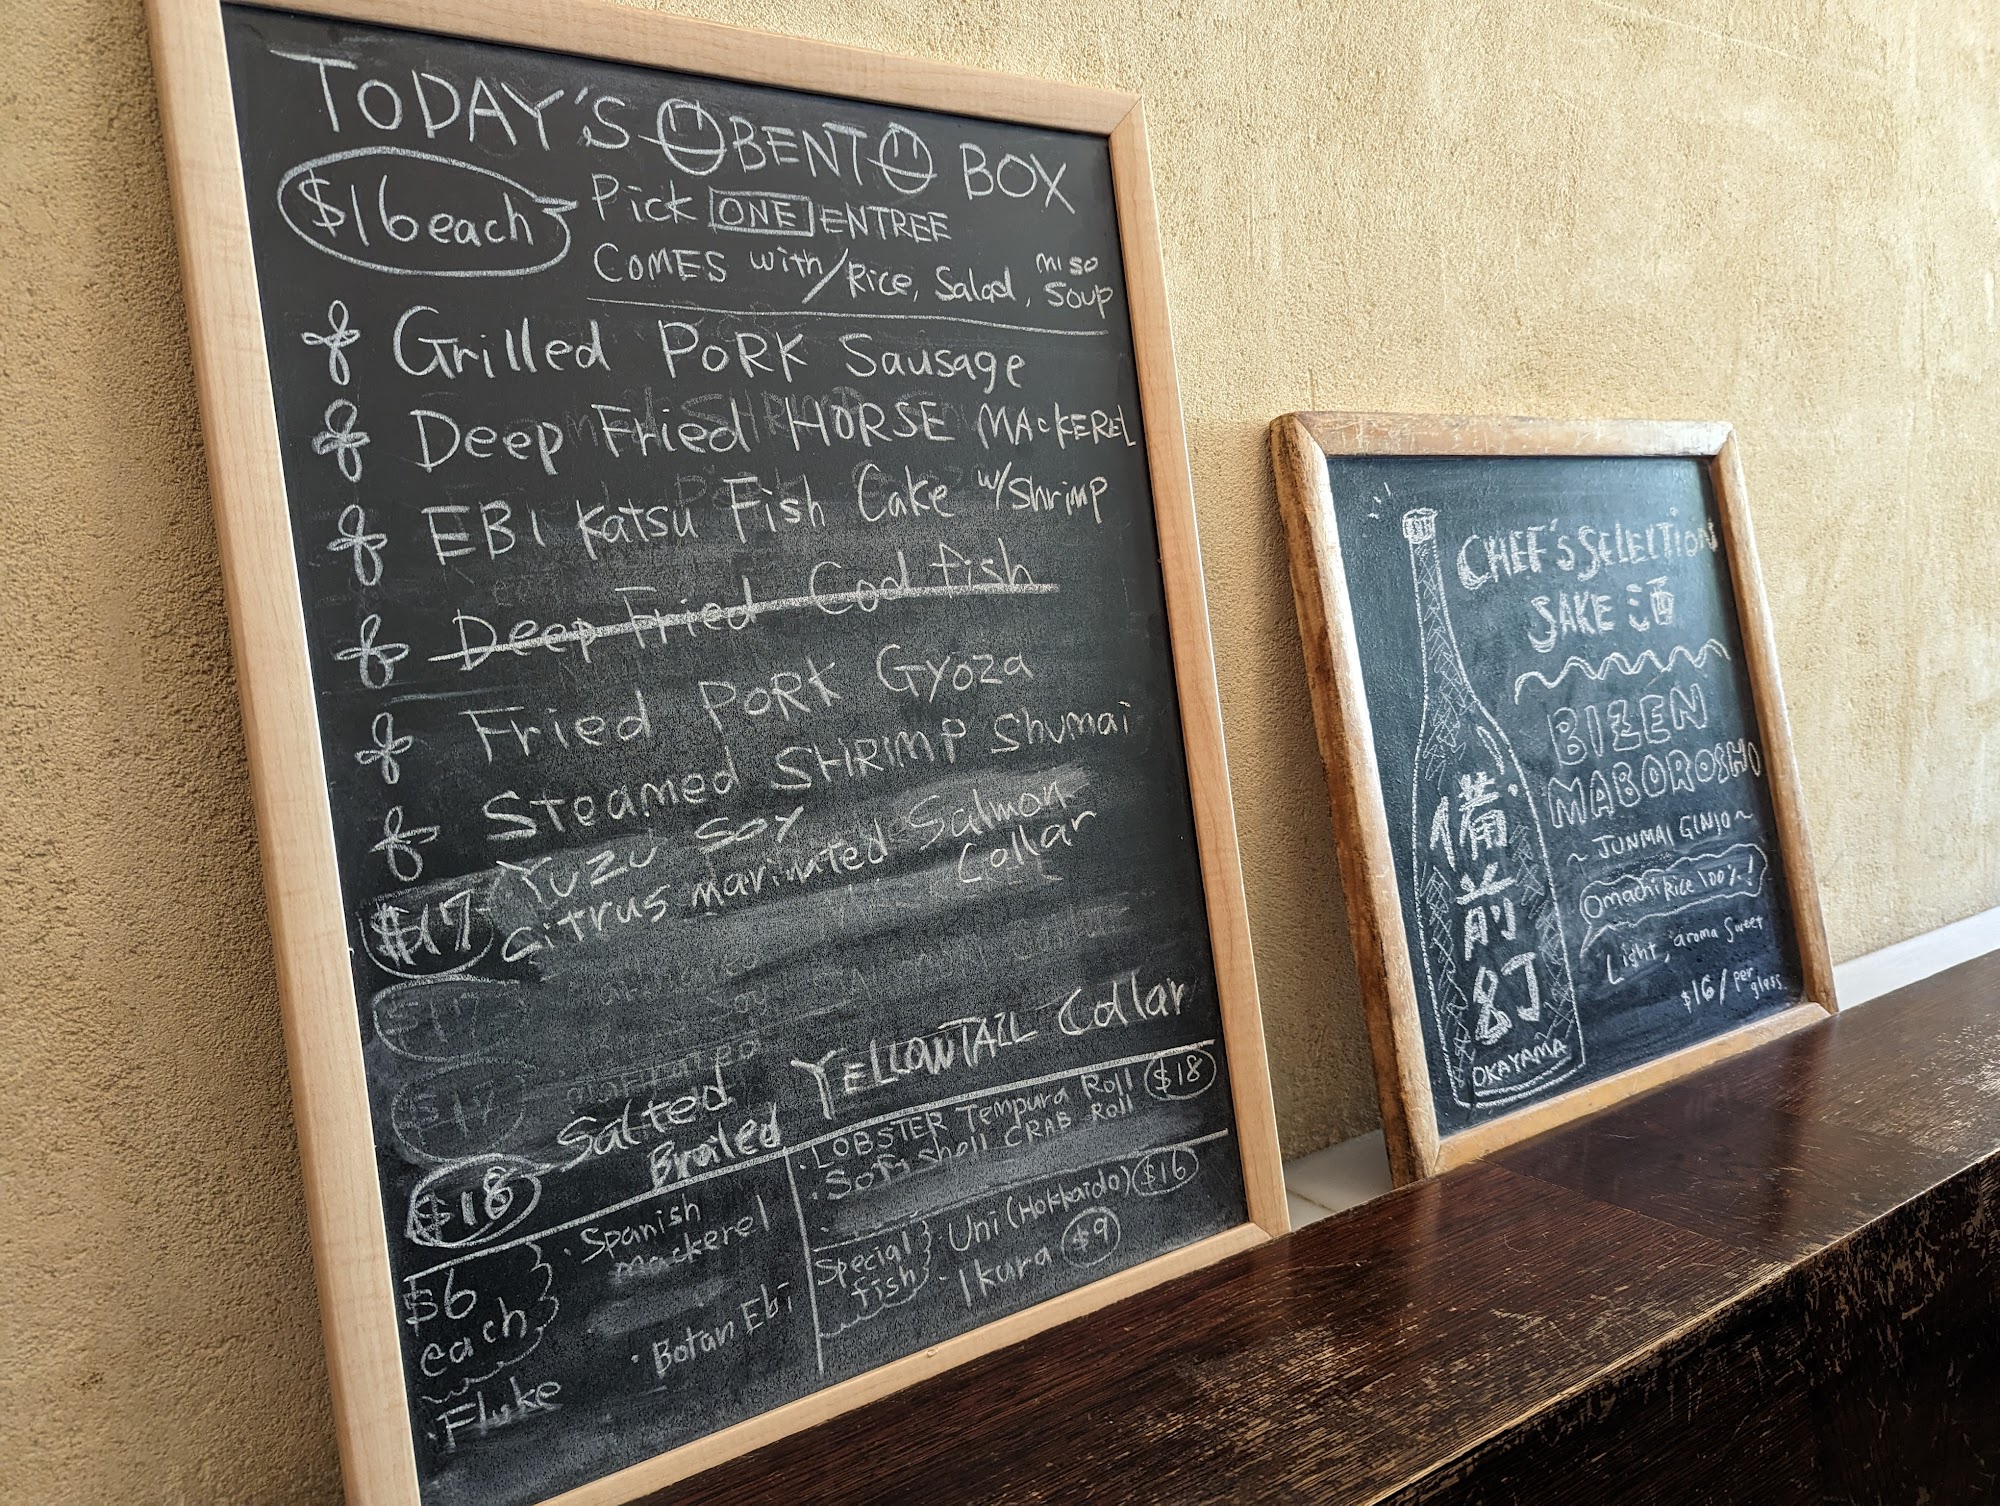 TODAY'S BENTO BOX
$16 each
Pick ONE ENTREE
COMES with/Rice, Salad, miso soup
Grilled PORK Sausage
Deep Fried HORSE MACKEREL
EBI Katsu Fish Cake w/shrimp
Deep Fried Cod fish
Fried PORK Gyoza
Steamed SHRIMP Shumai
$17 Yuzu Soy
Citrus marinated Salmon
Collar
$17
$17
$18 Salted
Broiled
YELLOWTAIL Collar
$6 each
· Spanish mackerel
· Botan Ebi
· Fluke
· LOBSTER Tempura Roll $18
· Soft shell CRAB Roll
Special fish
· Uni (Hokkaido) $16
· Ikura $9
CHEF'S SELECTION
SAKE 酒
BIZEN
MABOROSHI
~ JUNMAI GINJO ~
Omachi Rice 100%!
Light, aroma sweet
$16/per glass
備前幻
OKAYAMA